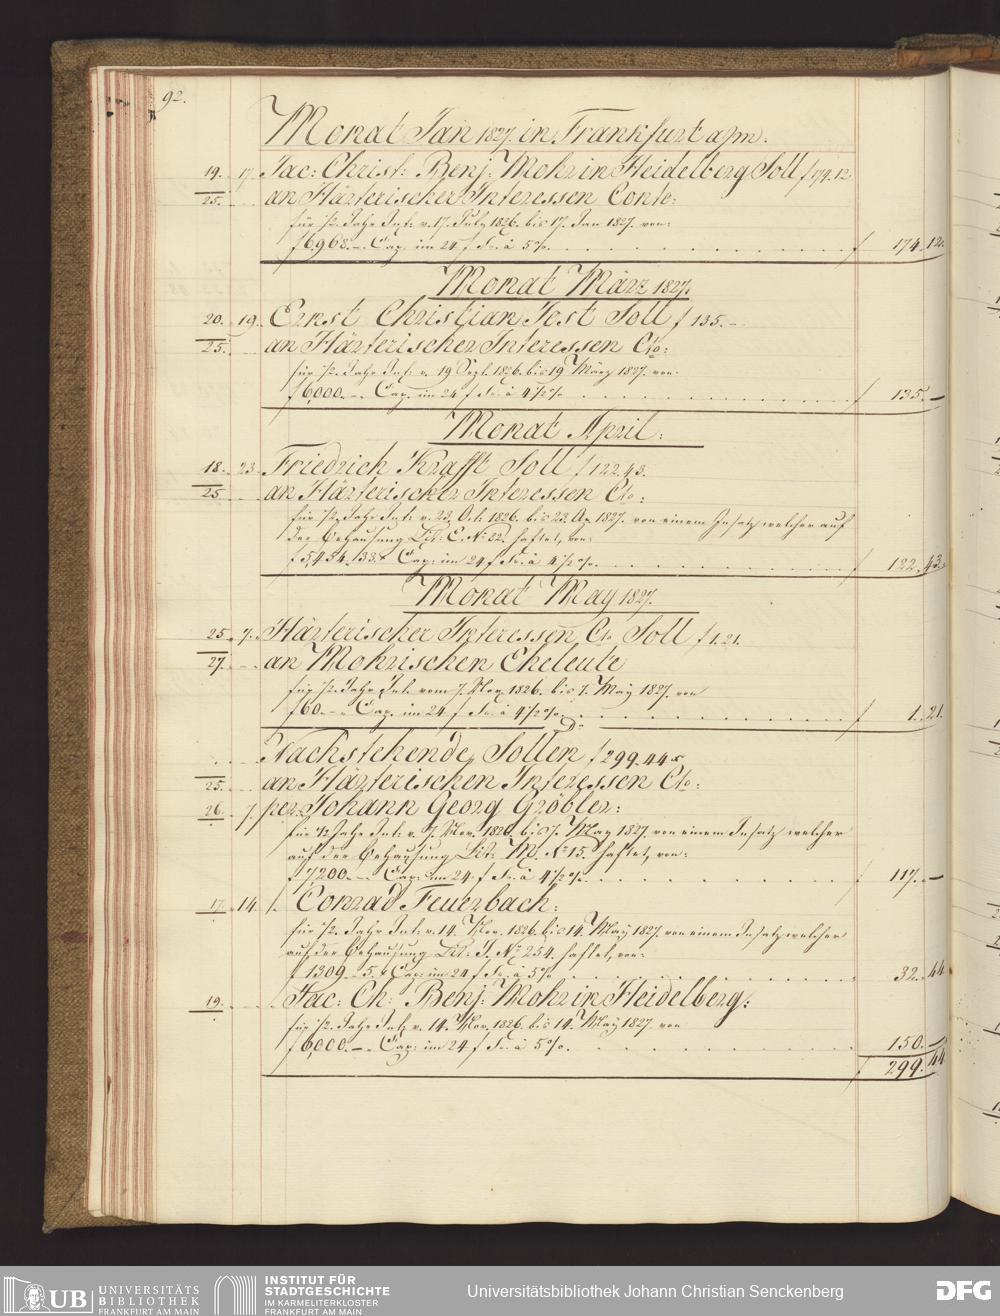 92.
Monat Jan 1827. in Frankfurt a/m.
19. 17. Jac: Christ: Benj: Mohr in Heidelberg Soll f 174.12
25. an Härterischer Interessen Conto:
für ½ Jahr Int: v. 17. July 1826. bis 17. Jan 1827. von:
f 6968.— Cap. im 24 f Fs. à 5% f 174. 12.
Monat März 1827.
20. 19. Ernst Christian Jost Soll f 135.—
25. an Härterischen Interessen Cto:
für ½ Jahr Int: v. 19 Sept. 1826. bis 19 März 1827. von:
f 6,000.— Cap. im 24 f Fs. à 4½% f 135. —
Monat April:
18. 23. Friedrich Krafft Soll f 122.43.
25. an Härterischer Interessen Cto:
für ½ Jahr Int: v. 23. Oct: 1826. bis 23. Ap. 1827. von einem Insatz welcher auf
der Behausung Lit: E. No 22. haftet, von:
f 5,454.133. Cap: im 24 f Fs. à 4½% f 122. 43.
Monat May 1827.
25. 7. Härterischer Interessen Cto Soll f 1.21.
27. an Mohrischen Eheleute
für ½ Jahr Int. vom 7. Nov. 1826. bis 7. May 1827. von
f 60.— Cap. im 24 f Fs. à 4½% f 1. 21.
Nachstehende Sollen f 299.44
25. an Härterischen Interessen Cto:
26. 7. per Johann Georg Gröbler:
für ½ Jahr Int: v. 7. Nov. 1826. bis 7. May 1827. von einem Insatz welcher
auf der Behausung Lit: M. No 15. haftet, von:
f 7,200.— Cap: im 24 f Fs. à 4½% f 117. —
17. 14. Conrad Feuerbach:
für ½ Jahr Int: v. 14. Nov. 1826. bis 14. May 1827. von einem Insatz welcher
auf der Behausung Lit: J. No 254. haftet, von:
f 1309.5. Cap: im 24 f Fs. à 5% 32. 44
19. Jac: Ch: Benj: Mohr in Heidelberg:
für ½ Jahr Int: v. 14. Nov. 1826. bis 14. May 1827 von
f 6,000.— Cap: im 24 f Fs. à 5%. 150. —
f 299. 44
UB UNIVERSITÄTS BIBLIOTHEK FRANKFURT AM MAIN
INSTITUT FÜR STADTGESCHICHTE IM KARMELITERKLOSTER FRANKFURT AM MAIN
Universitätsbibliothek Johann Christian Senckenberg
DFG